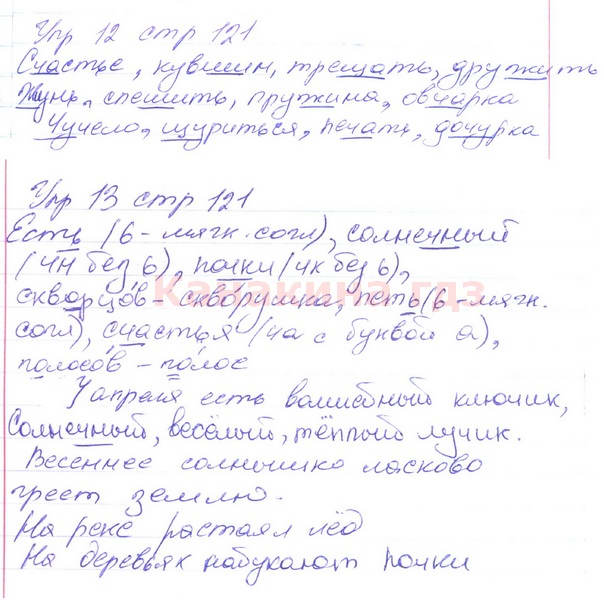 Упр 12 стр 121
Счастье, кувшин, трещать, дружить
Жунь, спешить, пружина, овчарка
Чучело, щуриться, печать, дочурка
Упр 13 стр 121
Есть (ь - мягк. согл), солнечный
(чн без ь), почки (чк без ь),
скворцов - скворушка, петь (ь - мягк.
согл), счастья (ча с буквой а),
полосов - полос
У апреля есть волшебный ключик,
Солнечный, весёлый, тёплый лучик.
Весеннее солнышко ласково
греет землю.
На реке растаял лёд
На деревьях набухают почки
Канакина.гдз